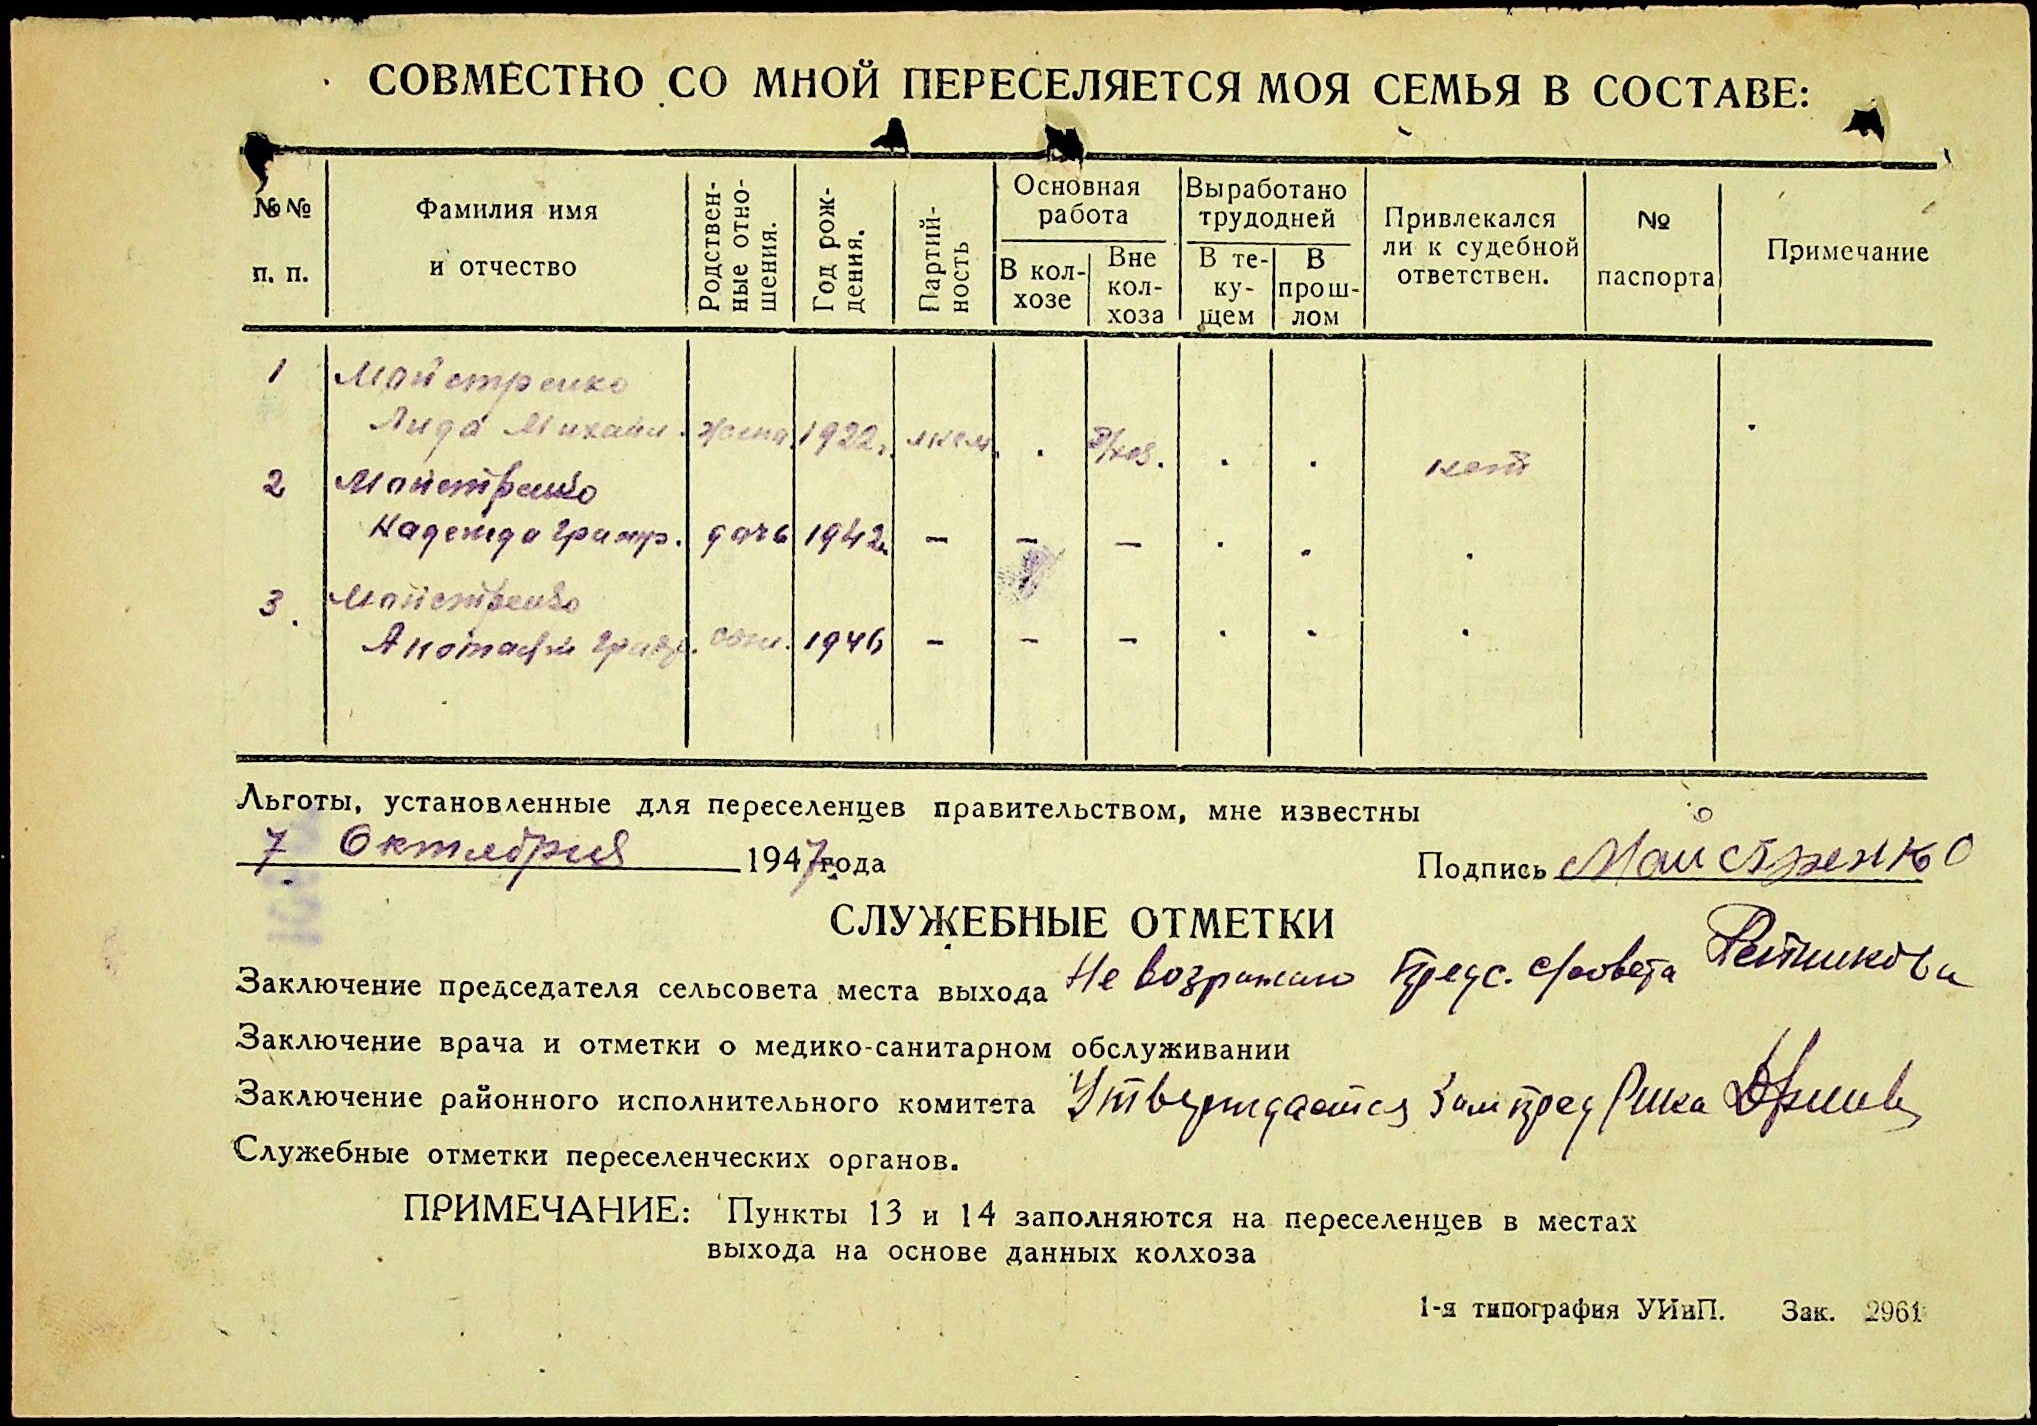 СОВМЕСТНО СО МНОЙ ПЕРЕСЕЛЯЕТСЯ МОЯ СЕМЬЯ В СОСТАВЕ:
№№ п. п.
Фамилия имя и отчество
Родствен-ные отно-шения.
Год рож-дения.
Партий-ность
Основная работа
В кол-хозе
Вне кол-хоза
Выработано трудодней
В те-ку-щем
В прош-лом
Привлекался ли к судебной ответствен.
№ паспорта
Примечание
1 Майстренко
Лида Михайл. жена 1922г. нет
2 Майстренко
Надежда Григор. дочь 1942 — — —
3. Майстренко
1946 — — —
Льготы, установленные для переселенцев правительством, мне известны
7 Октября 1947 года
Подпись Майстренко
СЛУЖЕБНЫЕ ОТМЕТКИ
Заключение председателя сельсовета места выхода Не возражаю Предс. с/совета
Заключение врача и отметки о медико-санитарном обслуживании
Заключение районного исполнительного комитета Утверждается Зам пред Рика
Служебные отметки переселенческих органов.
ПРИМЕЧАНИЕ: Пункты 13 и 14 заполняются на переселенцев в местах
выхода на основе данных колхоза
1-я типография УИиП. Зак. 2961